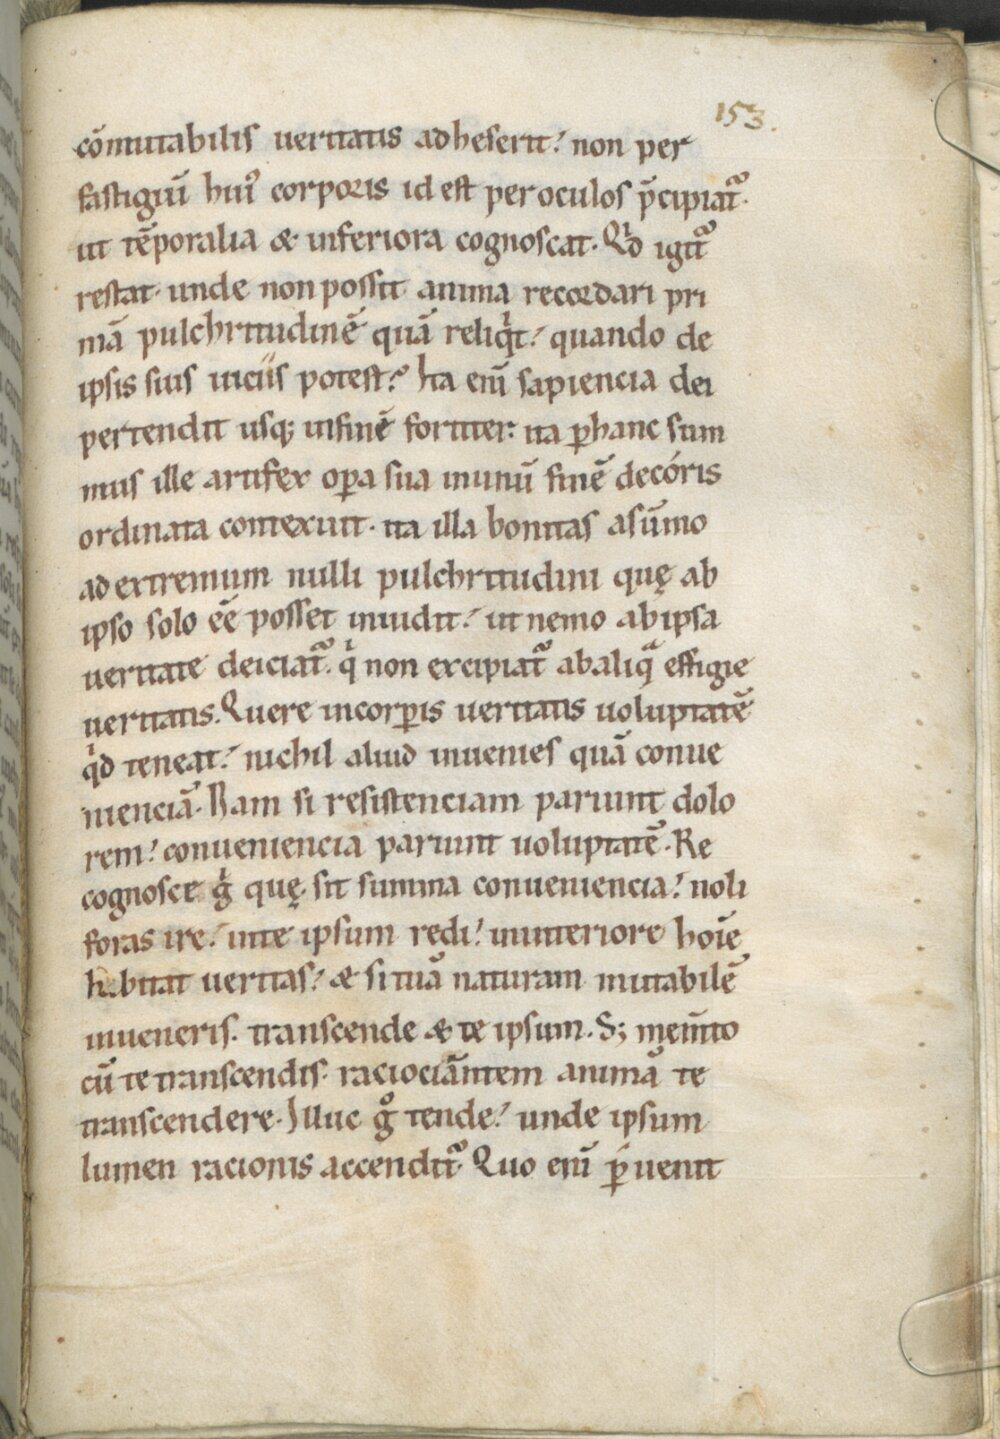 153.
cōmutabilis ueritatis adheserit? non per
fastigiū hui᷒ corporis id est per oculos p̄cipiat᷑.
ut tēporalia & inferiora cognoscat. Qͥd igit᷑
restat unde non possit anima recordari pri
mā pulchritudinē quā reliqͥt? quando de
ipsis suis uiciis potest? Ita eni̅ sapiencia dei
pertendit usq; infinē fortiter. ita ꝑ hanc sum
mus ille artifex oꝑa sua inunū finē decóris
ordinata contexuit. ita illa bonitas asūmo
ad extremum nulli pulchritudini quę ab
ipso solo eē posset inuidit? ut nemo ab ipsa
ueritate deiciat᷑. qͥ non excipiat᷑ ab aliqᷓ effigie
ueritatis. Quere incorꝑis ueritatis uoluptatē
qͥd teneat? nichil aliud inuenies quā conue
nienciā. Nam si resistenciam pariunt dolo
rem? conueniencia pariunt uoluptatē. Re
cognosce gͥ quę sit summa conueniencia? noli
foras ire? inte ipsum redi? ininteriore hoīe
habitat ueritas? & si tuā naturam mutabilē
inueneris. transcende & te ipsum. S; mem̄to
cū te transcendis. raciociāntem animā te
transcendere. Illuc gͦ tende? unde ipsum
lumen racionis accendit᷑. Quo eni̅ ꝑuenit